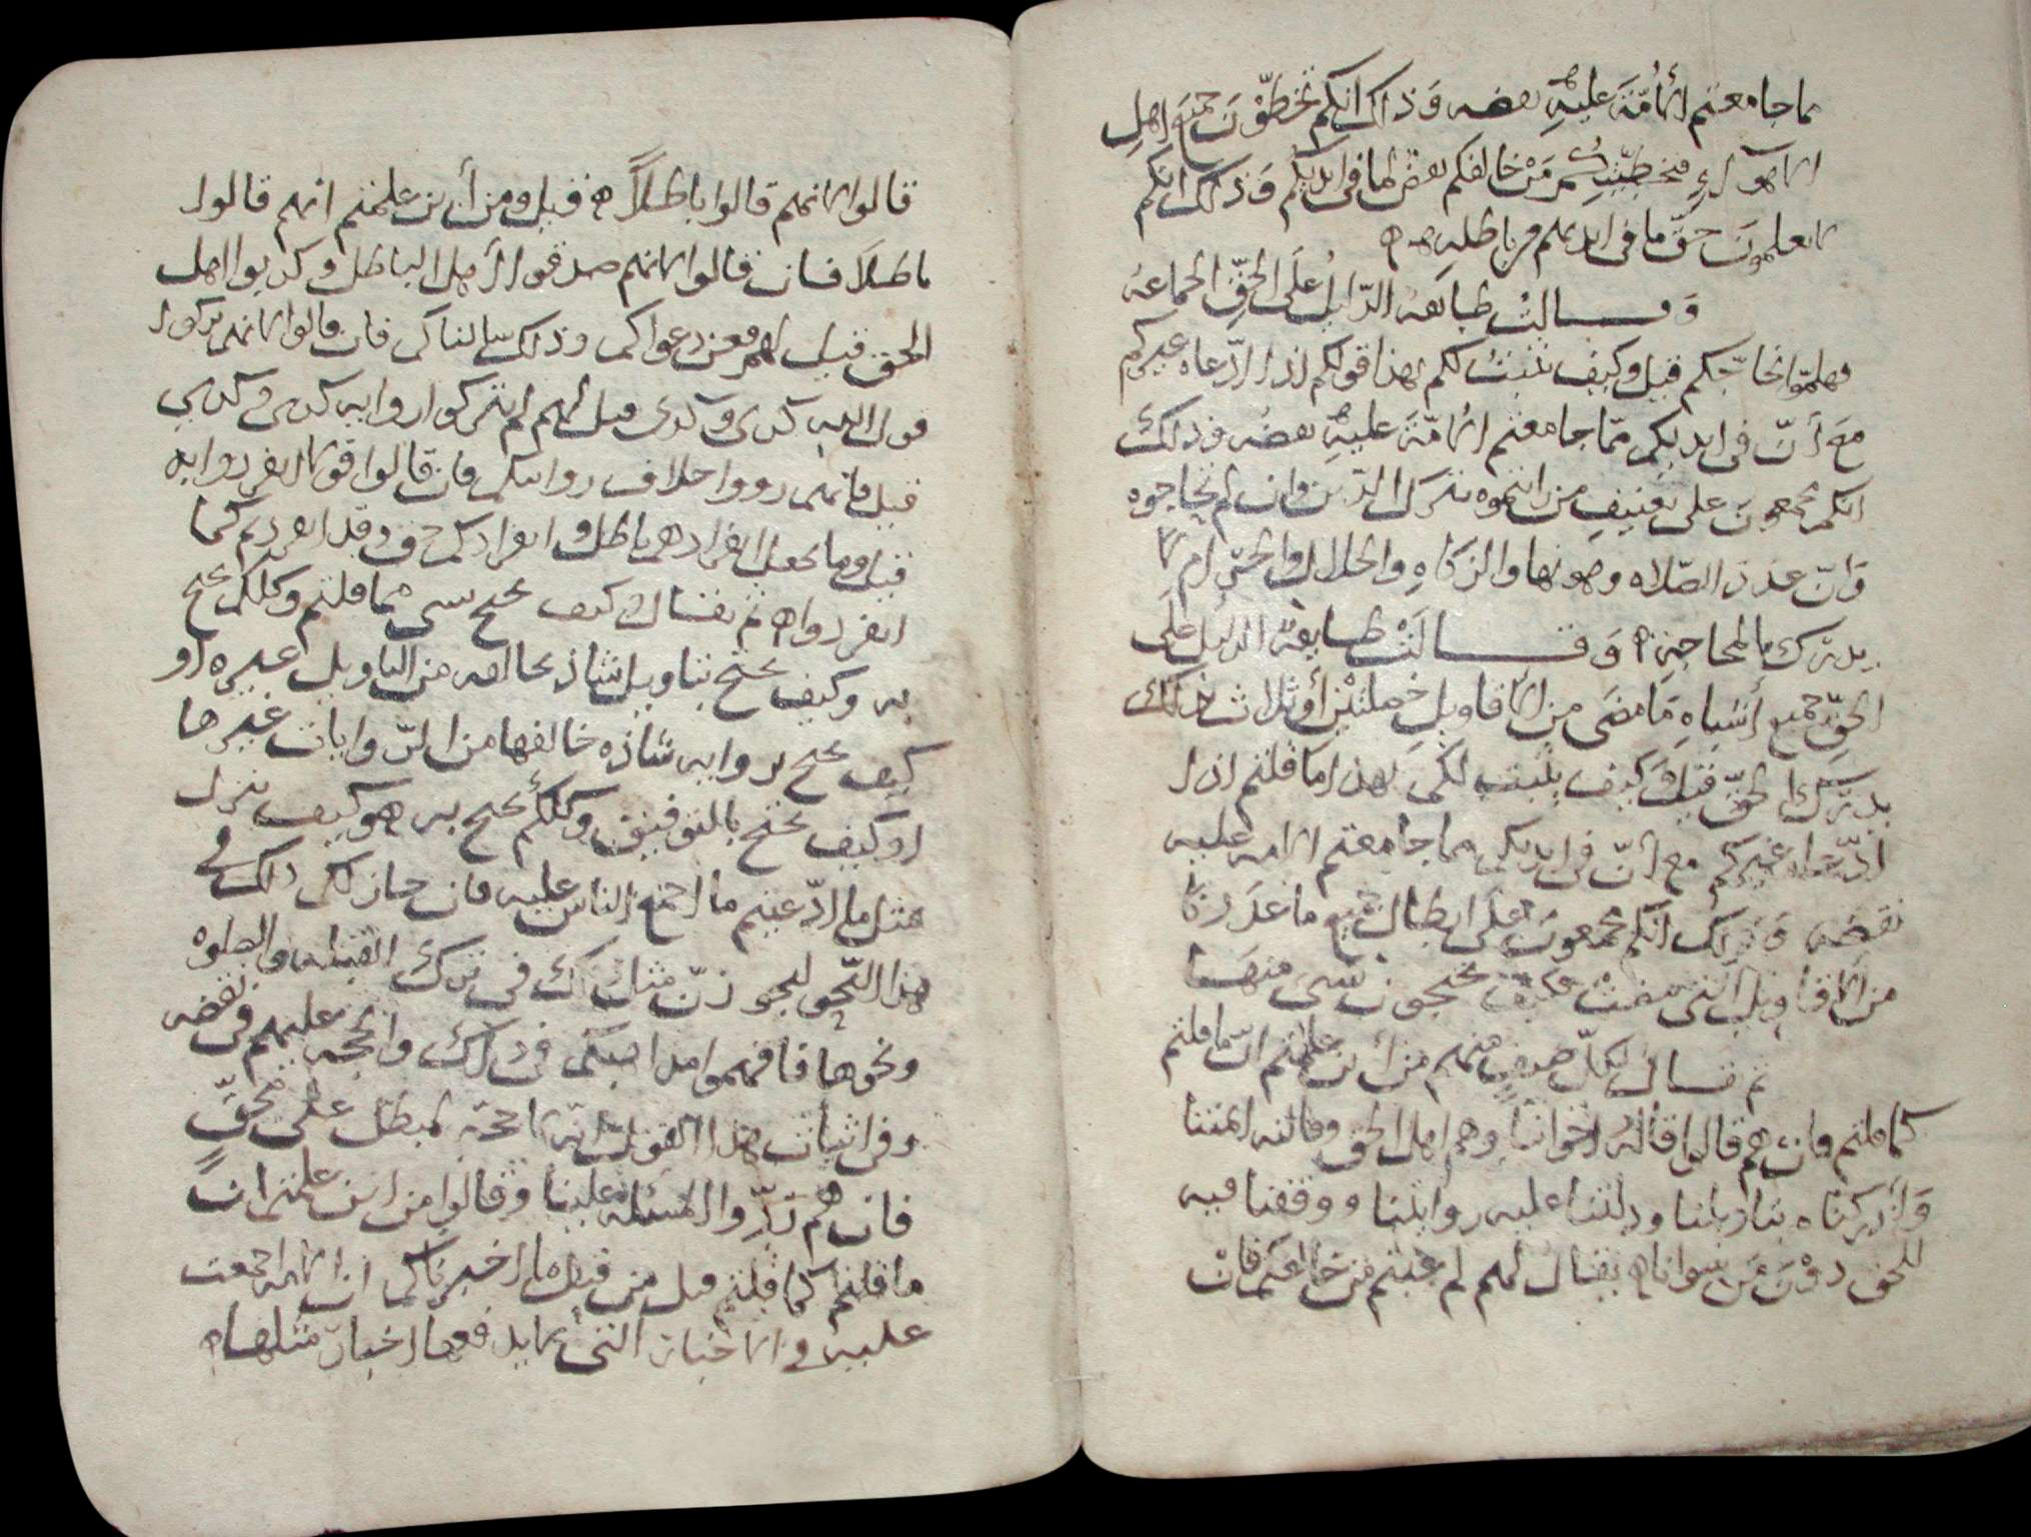 ما جامعتم الأمّة عليهِ بعضه وَذلك انكم تخطّوْنَ جميعَ اهلِ
الاهوآءِ مَنْ خالفكم بعض لما فى ايديكم وَذلك انكم
لا تعلمونَ حقّ ما فى ايديهم من باطله
وَقالتْ طايفه الدّليلُ عَلَى الحقِّ الجماعة
فهلمّوا نحاجّكم قيل وكيف يثبتُ لكم بهذا قولكم اذا ادّعاه غيركم
معَ أنّ فى ايديكم ممّا جامعتم الامّةَ عليهِ بعضه وذلك
انكم مجمعونَ على من بترك الدّين وان لم تحاجوه
وَانّ عندنا الصّلاه وصونها والزكاهِ والحلال والحرام لا
يدترك بالمحاجّة وَقالَتْ طايفة الدّليل عَلَى
الحقِّ جميع أشياءِ مَا مضَى من الاقاويل خصلتيْن أو ثلاث بذلك
يدترك الحقّ قيل وَكيف يثبت لكم بهذا ما قلتم اذا
ادّعاه غيركم مع أنّ فى ايديكم مما جامعتم الامه عليه
نقضه وَذلك انّكم مجمعونَ عَلَى ابطال جميع ما عدَدنا
من الاقاويل التى مضتْ فكيفَ تحتجون بشىءٍ منهَا
ثم نسال لكلّ صنفٍ منهم من أين علمتم انّ ما قلتم
كما قلتم فان هم قالوا قالهُ اخواننا وهم اهل الحق وقالته ائمتنا
وَأدركناه بتاويلنا ودلتنا عليه روايتنا ووقفنا فيه
للحق دوْنَ مَن سوانا يقال لهم لم عبتم من خالفكم فانْ
قالوا لانهم قالوا باطلاً قيل ومن أين علمتم انهم قالوا
باطلاً فان قالوا لانهم صدقوا أهل الباطل وكذبوا اهل
الحق قيل لهم فعن دعواكم وذلك سالناكم فان قالوا لانهم تركوا
قول الله كذى وكذى قيل لهم لم يتركوا روايه كذى وكذى
قيل فانهم رووا خلاف روايتكم فان قالوا قولا انفردوا به
قيل وما جعل انفرادهم باطل وانفرادكم حق وقد انفردتم كما
انفردوا ثم يقال كيف يحتج بشى مما قلتم وكلكم يحتج
به وكيف يحتج بتاويل شاذ خالفه من التاويل غيره او
كيف يحتج بروايه شاذه خالفها من الرّوايات غيرها
او كيف يحتج بالتوفيق وكلكم يحتج به هو كيف نزل
مثل ما ادّعيتم ما اجمع الناس عليه فان جاز لكم ذلك فى
هذا النّحو ليجوزنّ مثل ذلك فى ترك القبله والصلوه
ونحوها فافهموا مذاهبكم فى ذلك والحجه عليهم فى نقضه
وفى اثبات هذا القول انّه لا حجة لمبطل على محقٍّ
فان هم ردّوا المسئله علينا وقالوا من اين علمتم انّ
ما قلتم كما قلتم قيل من قبل ما اخبرناكم ان الامه اجمعت
عليه والاخبار التى لا يدفعها اخبارٌ مثلها